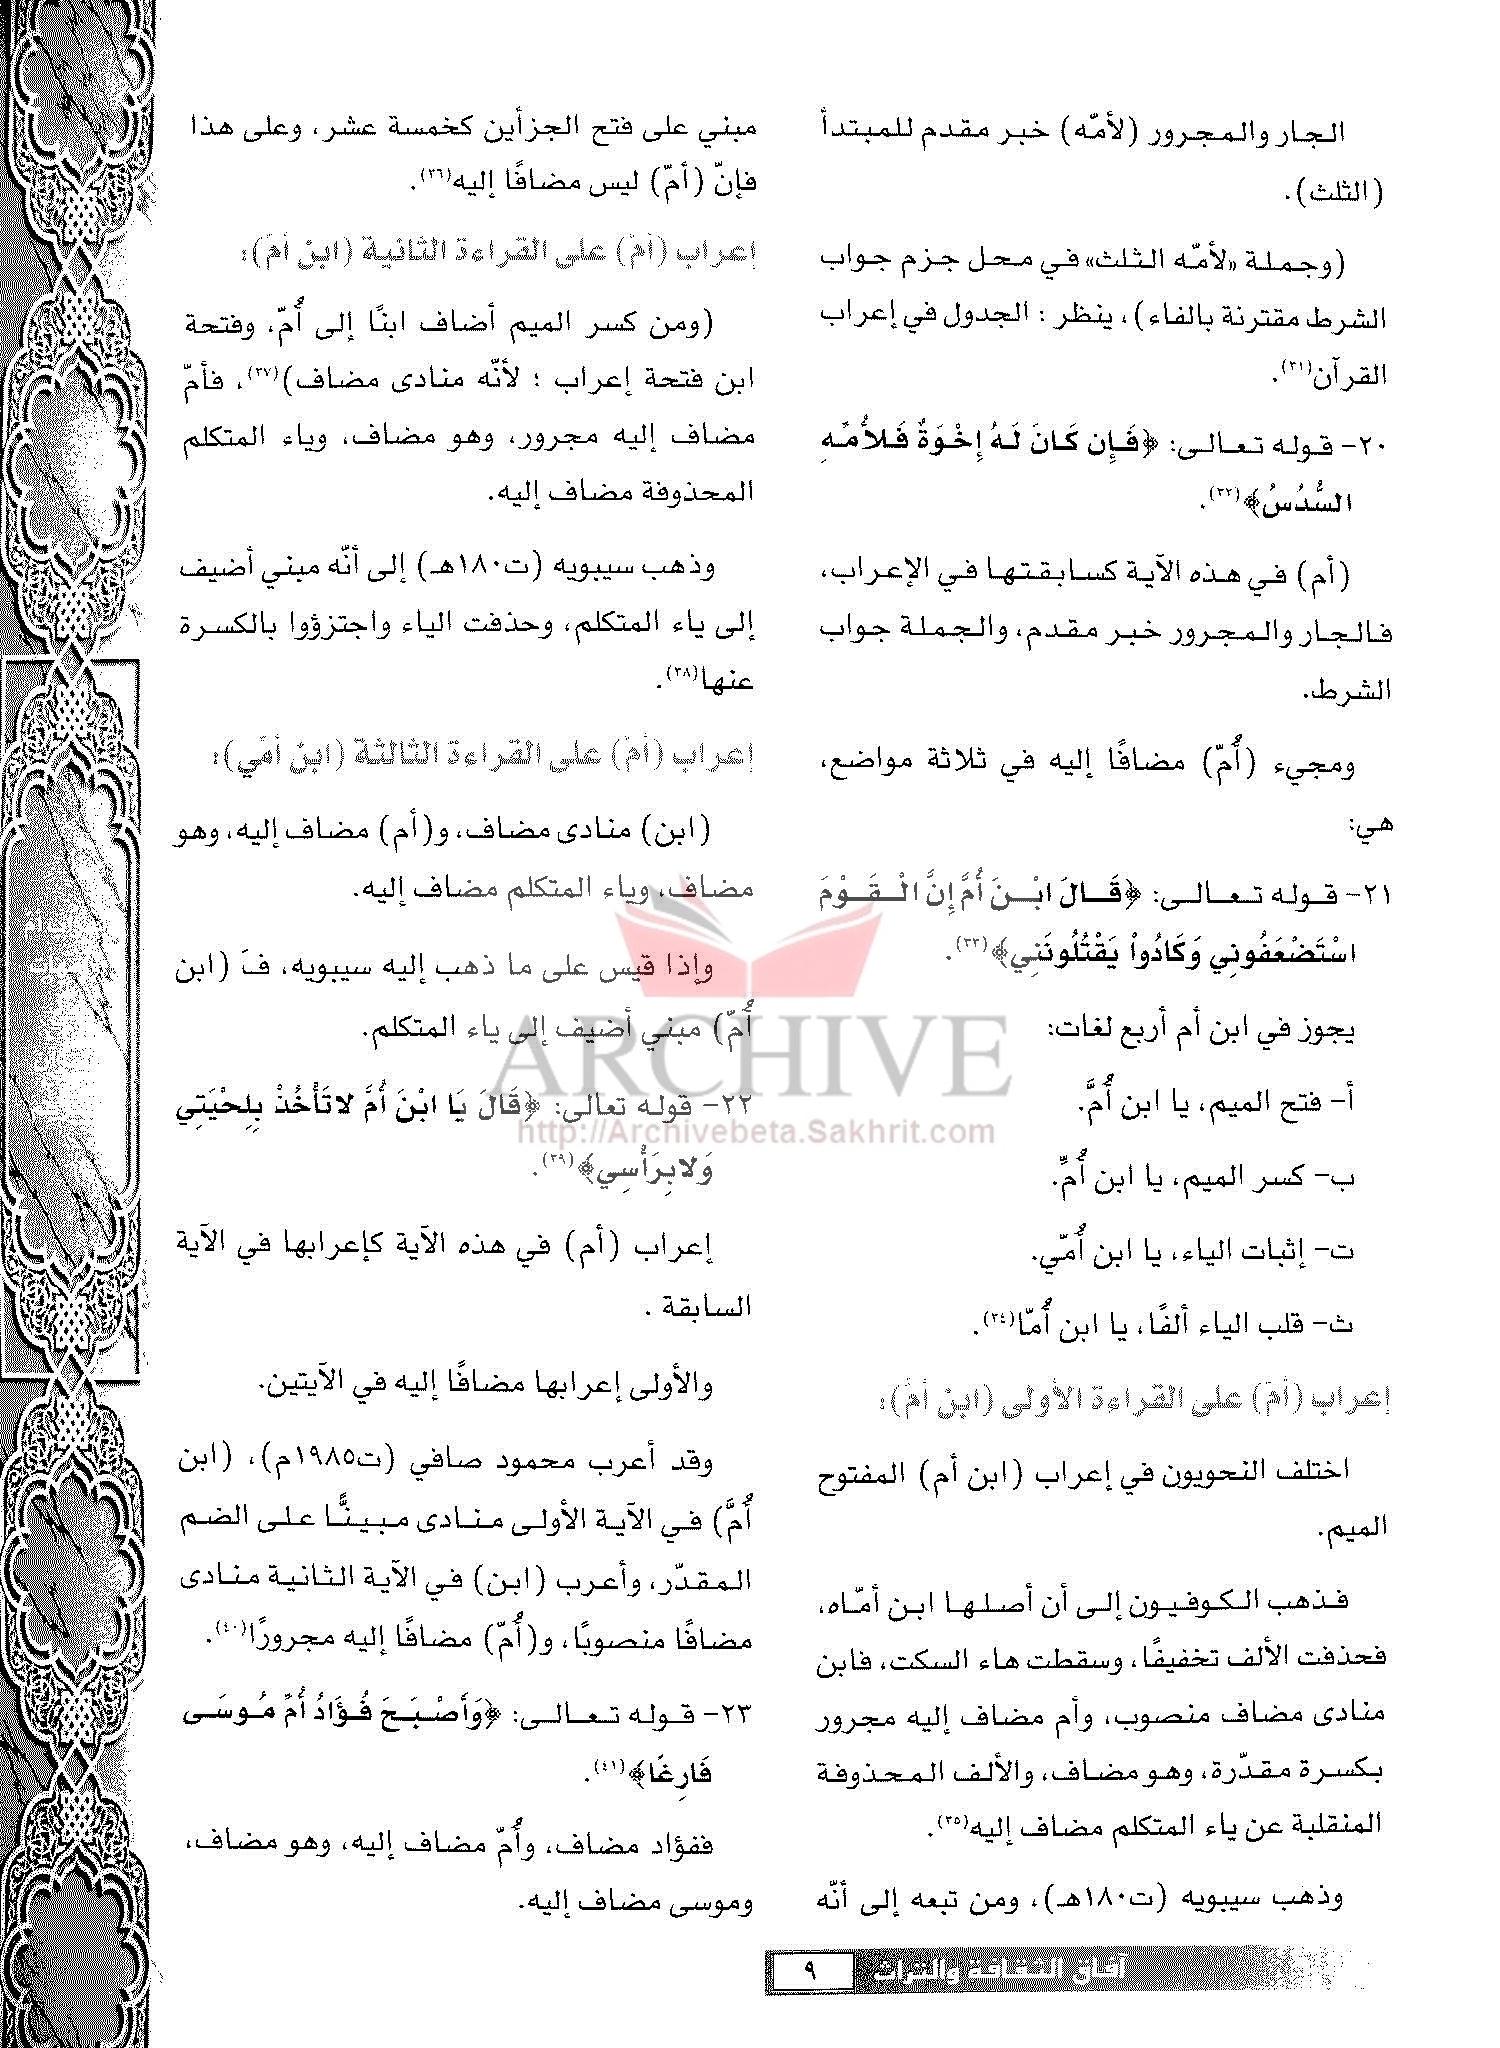 الجار والمجرور (لأمّه) خبر مقدم للمبتدأ
(الثلث).
(وجملة «لأمّه الثلث» في محل جزم جواب
الشرط مقترنة بالفاء)، ينظر : الجدول في إعراب
القرآن(٣١).
٢٠- قوله تعالى: ﴿فَإِن كَانَ لَهُ إِخْوَةٌ فَلأُمِّهِ
السُّدُسُ﴾(٣٢).
(أم) في هذه الآية كسابقتها في الإعراب،
فالجار والمجرور خبر مقدم، والجملة جواب
الشرط.
ومجيء (أُمّ) مضافًا إليه في ثلاثة مواضع،
هي:
٢١- قوله تعالى: ﴿قَالَ ابْنَ أُمَّ إِنَّ الْقَوْمَ
اسْتَضْعَفُونِي وَكَادُواْ يَقْتُلُونَنِي﴾(٣٣).
يجوز في ابن أم أربع لغات:
أ- فتح الميم، يا ابن أُمَّ.
ب- كسر الميم، يا ابن أُمِّ.
ت- إثبات الياء، يا ابن أُمّي.
ث- قلب الياء ألفًا، يا ابن أُمّا(٣٤).
إعراب (أمّ) على القراءة الأولى (ابنَ أمَّ):
اختلف النحويون في إعراب (ابن أم) المفتوح
الميم.
فذهب الكوفيون إلى أن أصلها ابن أمّاه،
فحذفت الألف تخفيفًا، وسقطت هاء السكت، فابن
منادى مضاف منصوب، وأم مضاف إليه مجرور
بكسرة مقدّرة، وهو مضاف، والألف المحذوفة
المنقلبة عن ياء المتكلم مضاف إليه(٣٥).
وذهب سيبويه (ت١٨٠هـ)، ومن تبعه إلى أنّه
مبني على فتح الجزأين كخمسة عشر، وعلى هذا
فإنّ (أمّ) ليس مضافًا إليه(٣٦).
إعراب (أمّ) على القراءة الثانية (ابنَ أمِّ):
(ومن كسر الميم أضاف ابنًا إلى أُمّ، وفتحة
ابن فتحة إعراب ؛ لأنّه منادى مضاف)(٣٧)، فأمّ
مضاف إليه مجرور، وهو مضاف، وياء المتكلم
المحذوفة مضاف إليه.
وذهب سيبويه (ت١٨٠هـ) إلى أنّه مبني أضيف
إلى ياء المتكلم، وحذفت الياء واجتزؤوا بالكسرة
عنها(٣٨).
إعراب (أمّ) على القراءة الثالثة (ابنَ أمّي):
(ابن) منادى مضاف، و(أم) مضاف إليه، وهو
مضاف، وياء المتكلم مضاف إليه.
وإذا قيس على ما ذهب إليه سيبويه، فَ (ابن
أُمّ) مبني أضيف إلى ياء المتكلم.
٢٢- قوله تعالى: ﴿قَالَ يَا ابْنَ أُمَّ لاتَأْخُذْ بِلِحْيَتِي
وَلابِرَأْسِي﴾(٣٩).
إعراب (أم) في هذه الآية كإعرابها في الآية
السابقة .
والأولى إعرابها مضافًا إليه في الآيتين.
وقد أعرب محمود صافي (ت١٩٨٥م)، (ابن
أُمَّ) في الآية الأولى منادى مبينًّا على الضم
المقدّر، وأعرب (ابن) في الآية الثانية منادى
مضافًا منصوبًا، و(أُمّ) مضافًا إليه مجرورًا(٤٠).
٢٣- قوله تعالى: ﴿وَأَصْبَحَ فُؤَادُ أُمِّ مُوسَى
فَارِغًا﴾(٤١).
ففؤاد مضاف، وأُمّ مضاف إليه، وهو مضاف،
وموسى مضاف إليه.
ARCHIVE
http://Archivebeta.Sakhrit.com
آفاق الثقافة والتراث
٩